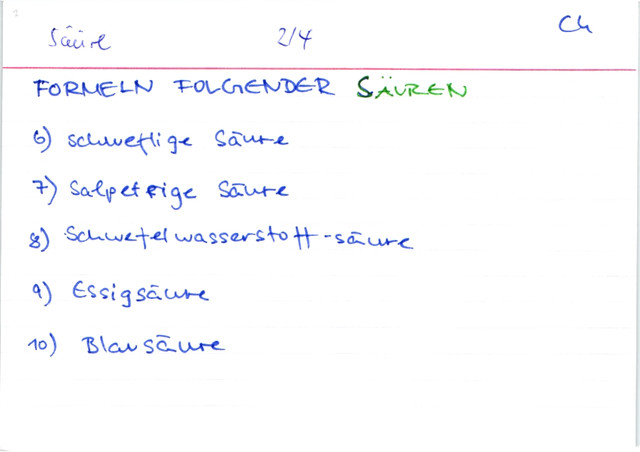 Säure 2/4 Ch
FORMELN FOLGENDER SÄUREN
6) schweflige Säure
7) Salpetrige Säure
8) Schwefelwasserstoff-säure
9) Essigsäure
10) Blausäure